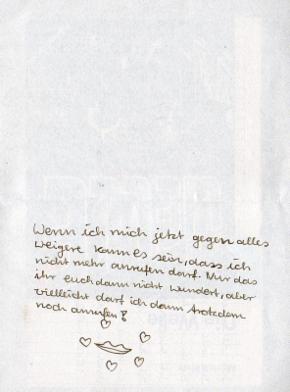 Wenn ich mich jetzt gegen alles
weigere kann es sein, dass ich
nicht mehr anrufen darf. Nur das
ihr euch dann nicht wundert, aber
vielleicht darf ich dann trotzdem
noch anrufen!